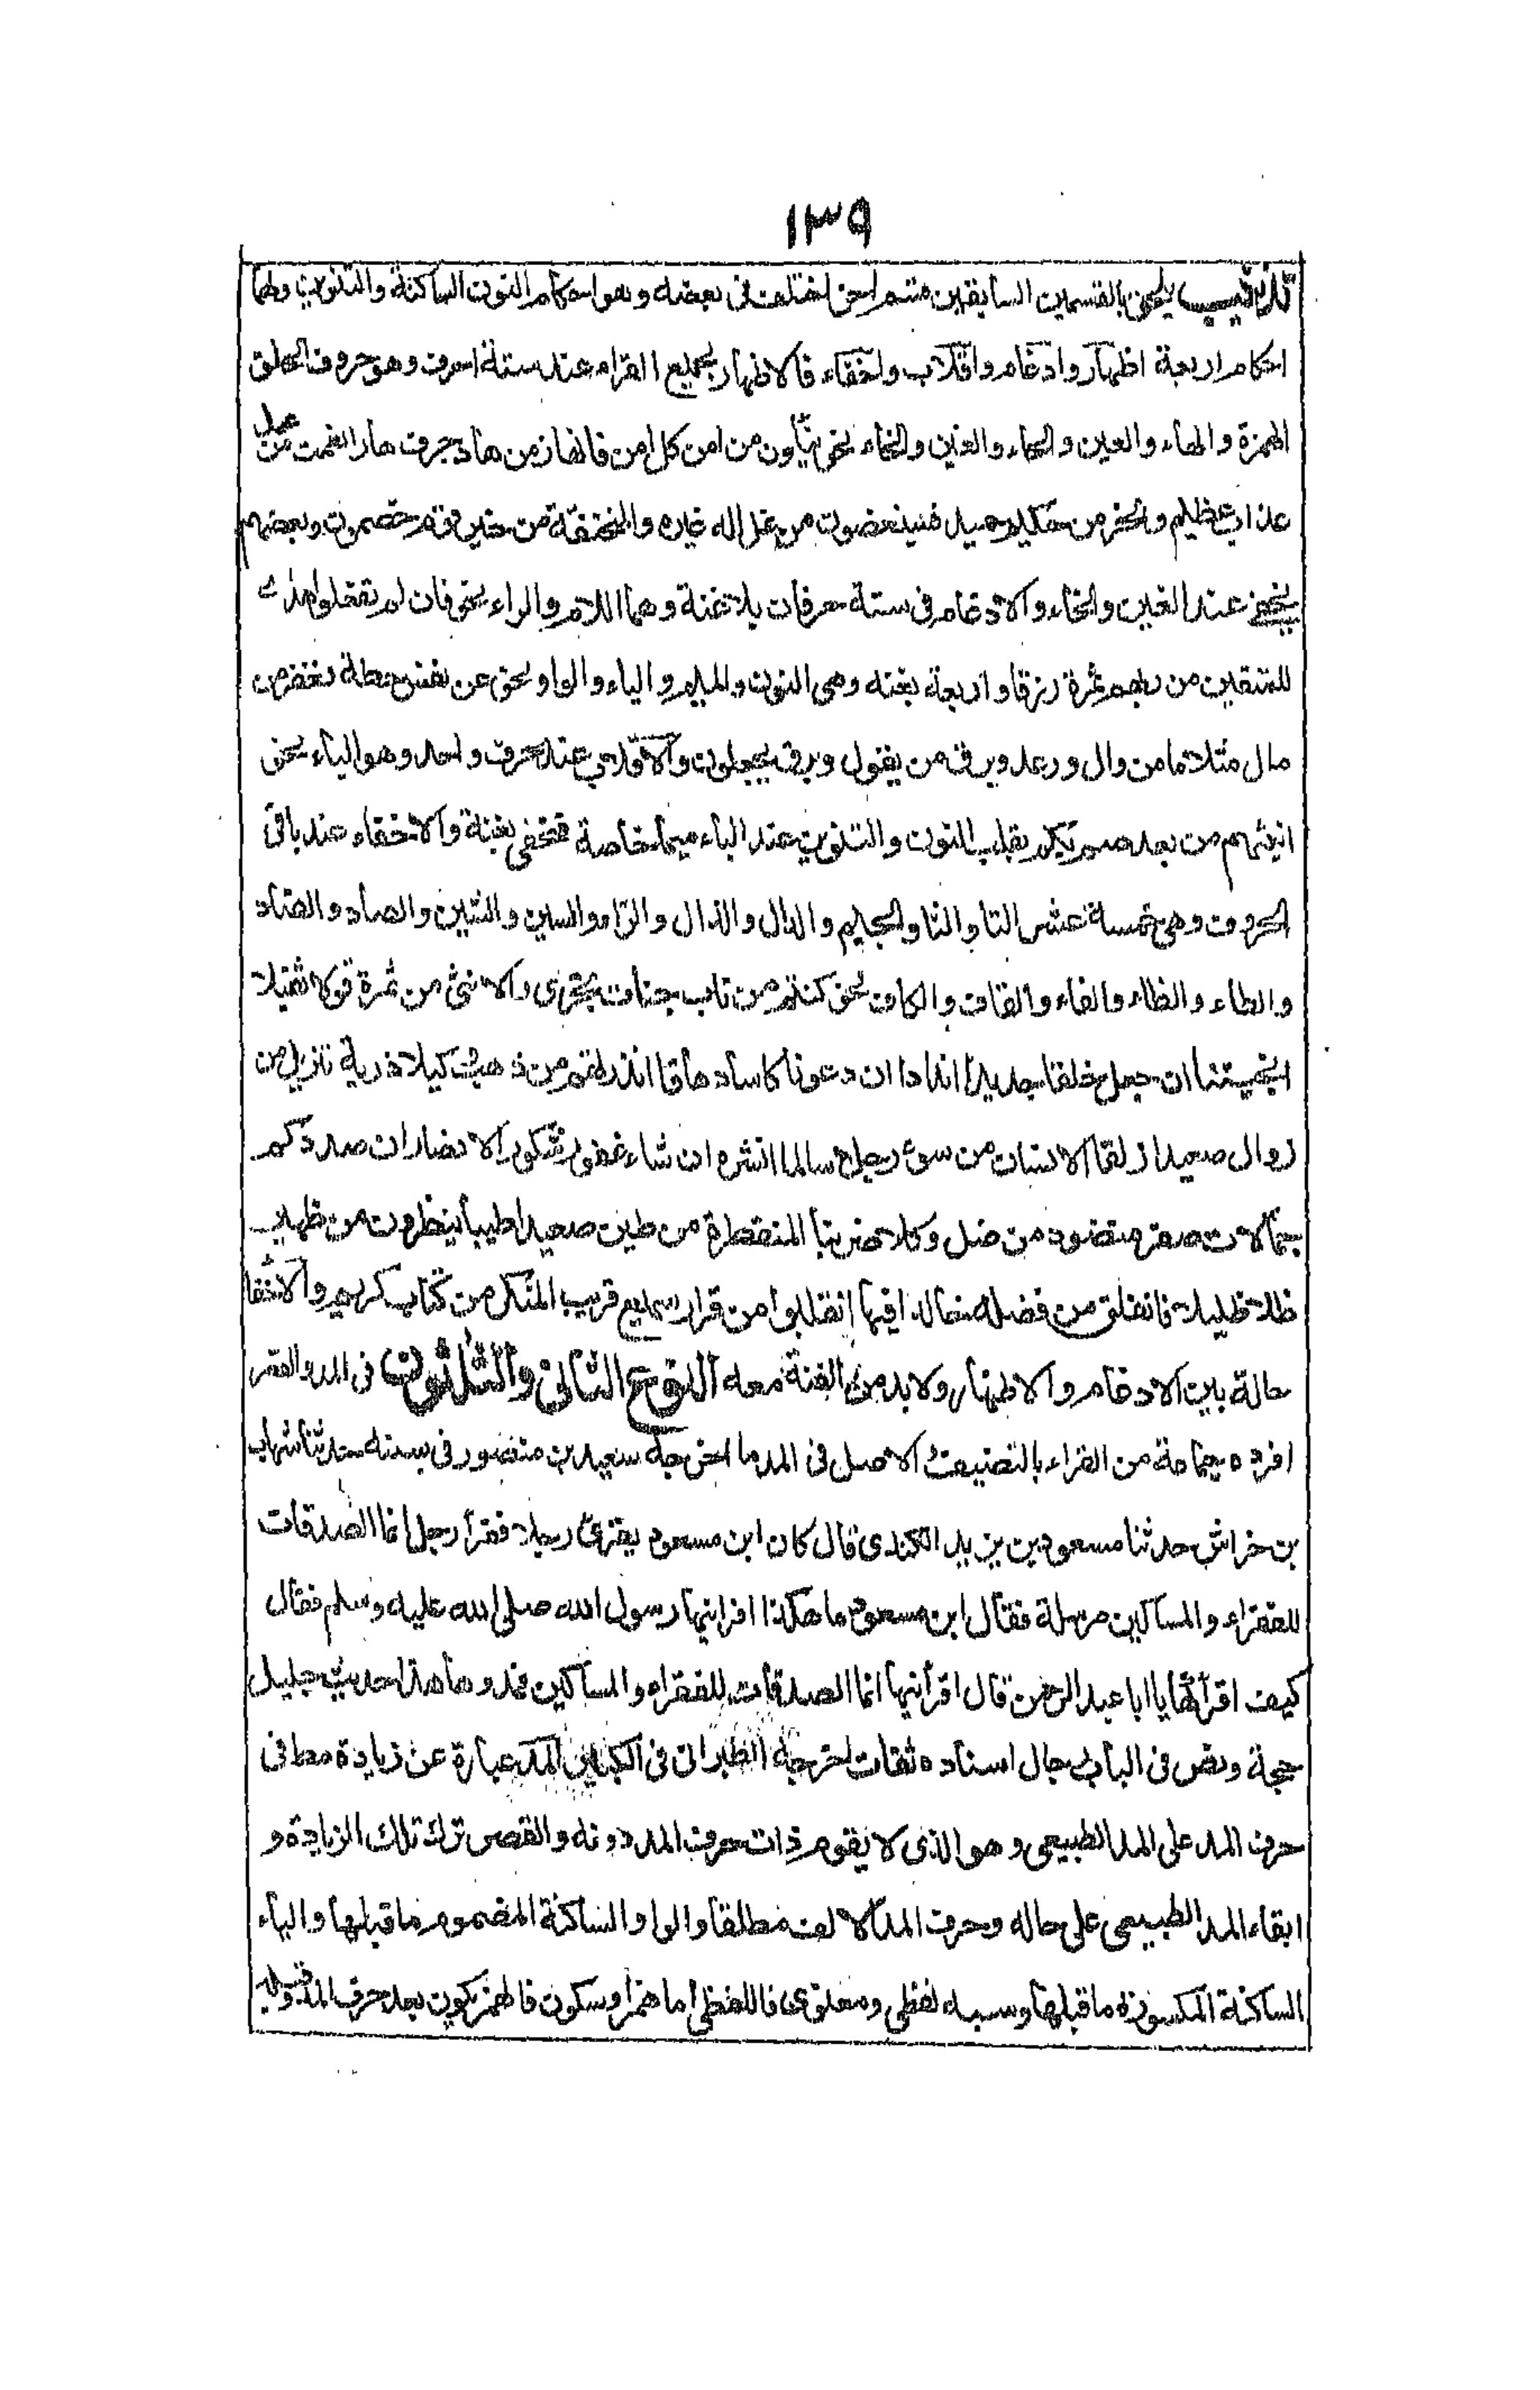 ١٣٩
تذنيب يلحق بالقسمين السابقين قسم اخر اختلف فى بعضه وهو احكام النون الساكنة والتنوين ولهما
احكام اربعة اظهار وادغام واقلاب واخفاء فالاظهار لجميع القراء عند ستة احرف وهو حروف الحلق
الهمزة والهاء والعين والحاء والغين والخاء نحو ينأون من امن كل امن فانهار من هاد جرف هار انعمت من عمل
عذاب عظيم وانحر من حكيم حميد فسينغضون من غل اله غيره والمنخنقة من خير قوم خصمون وبعضهم
يخفى عند الغين والخاء والادغام فى ستة حرفان بلا غنة وهما اللام والراء نحو فان لم تفعلوا هدى
للمتقين من ربهم ثمرة رزقا واربعة بغنه وهى النون والميم والياء والواو نحو عن نفس حطة نغفر من
مال مثلا ما من وال ورعد وبرق من يقول وبرق يجعلون والاقلاب عند حرف واحد وهو الباء نحو
انبئهم من بعد صم بكم بقلب النون والتنوين عند الباء ميما خاصة فتخفى بغنة والاخفاء عند باقى
الحروف وهى خمسة عشر التا والثا والجيم والدال والذال والزاء والسين والشين والصاد والضاد
والطاء والظاء والفاء والقاف والكاف نحو كنتم من تاب جنات تجرى والانثى من ثمرة قولا ثقيلا
انجيتنا ان جعل خلقا جديدا اندادا ان دعونا كاسا دهاقا انذرتهم من ذهب كيلا ذرية تنزيل من
زوال صعيدا زلقا الانسان من سوء رجلا سالما انشره ان شاء غفور شكور الانصار ان صدوكم
جمالات صفر منضود من ضل وكلا ضربنا المنقطرة من طين صعيدا طيبا ينظرون من ظهير
ظلا ظليلا فانفلق من فضله خالدا فيها انقلبوا من قرار سميع قريب المنكر من كتاب كريم والاخفا
حالة بين الادغام والاظهار ولا بد من الغنة معه النوع الثانى والثلثون فى المد والقصر
افرده جماعة من القراء بالتصنيف الاصل فى المد ما اخرجه سعيد بن منصور فى سننه حدثنا شهاب
بن خراش حدثنا مسعود بن يزيد الكندى قال كان ابن مسعود يقرئ رجلا فقرأ رجل انما الصدقات
للفقراء والمساكين مرسلة فقال ابن مسعود ما هكذا اقرانيها رسول الله صلى الله عليه وسلم فقال
كيف اقرأكها يا ابا عبد الرحمن قال اقرأنيها انما الصدقات للفقراء والمساكين فمدوها هذا حديث جليل
حجة ونص فى الباب رجال اسناده ثقات اخرجه الطبرانى فى الكبير المد عبارة عن زيادة مط فى
حرف المد على المد الطبيعى وهو الذى لا يقوم ذات حرف المد دونه والقصر ترك تلك الزيادة و
ابقاء المد الطبيعى على حاله وحرف المد الالف مطلقا والواو الساكنة المضموم ما قبلها والياء
الساكنة المكسورة ما قبلها وسببه لفظى ومعنوى فاللفظى اما همز او سكون فالهمز يكون بعد حرف المد وقبله